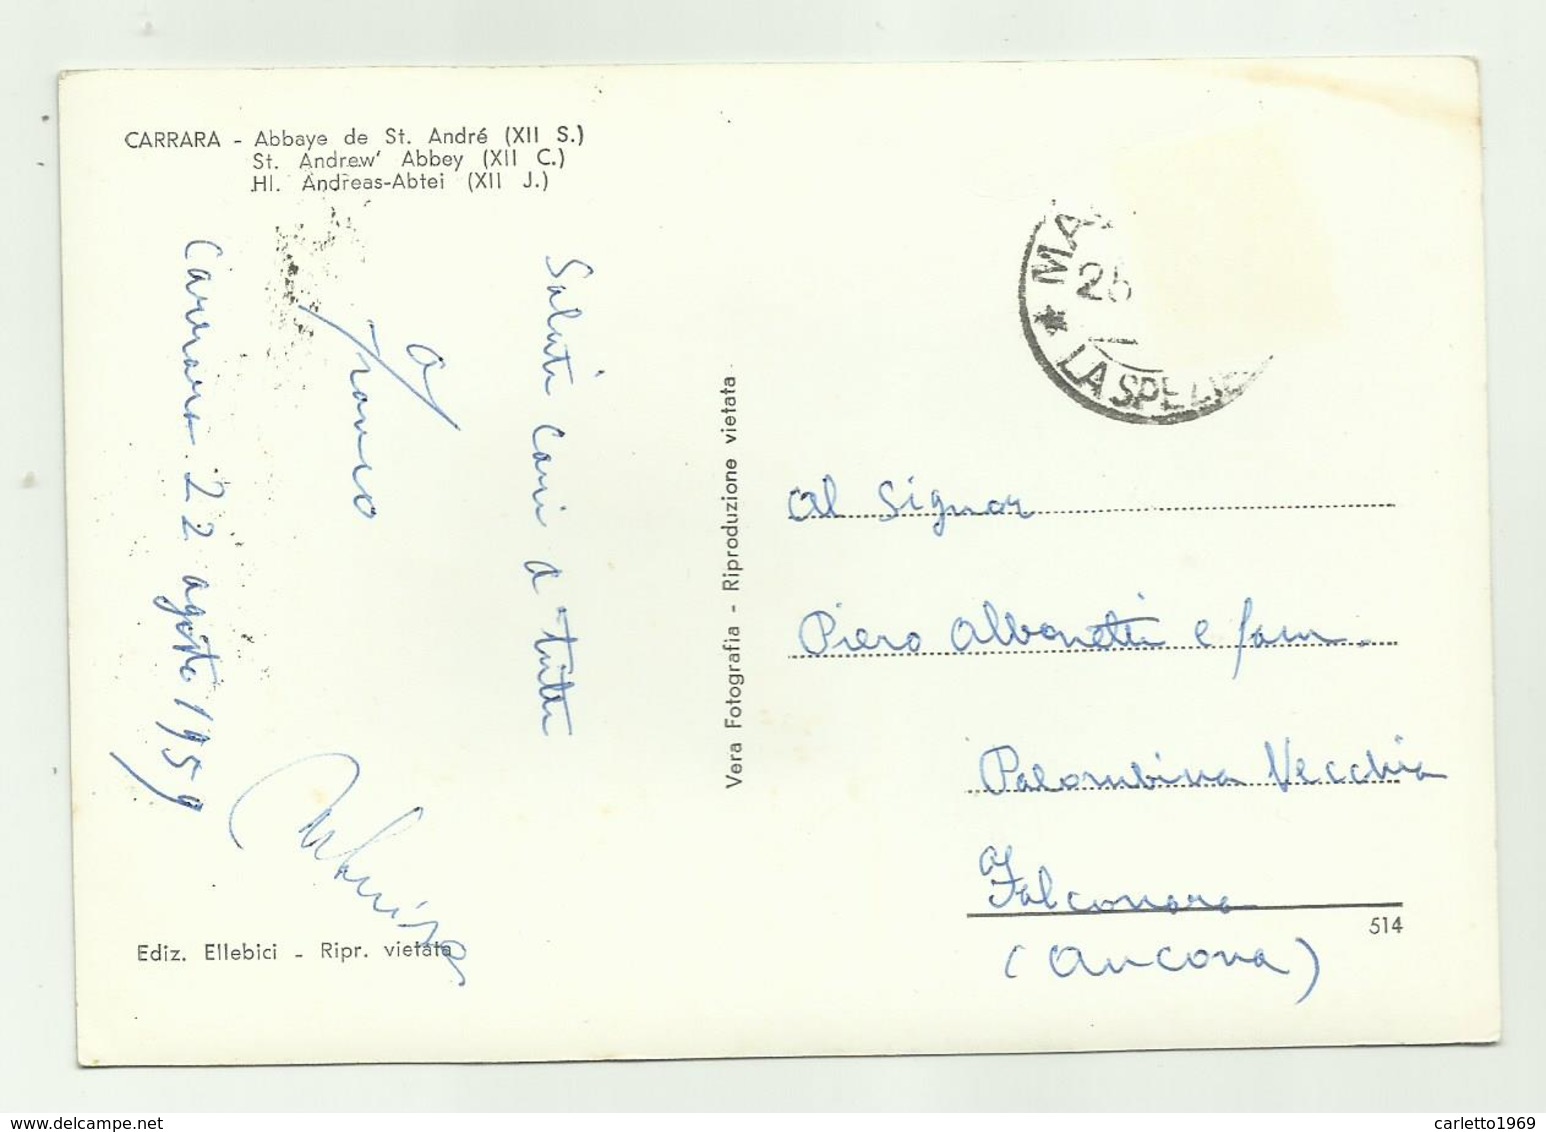 CARRARA - Abbaye de St. André (XII S.)
St. Andrew' Abbey (XII C.)
Hl. Andreas-Abtei (XII J.)
Carrara 22 agosto 1959
Saluti Cari a tutti
Franco
Vera Fotografia - Riproduzione vietata
MA
25
LA SPEZIA
al Signor
Piero Albonetti e fam.
Palombina Vecchia
Falconara
(Ancona)
514
Ediz. Ellebici - Ripr. vietata
delcampe.net
carletto1969